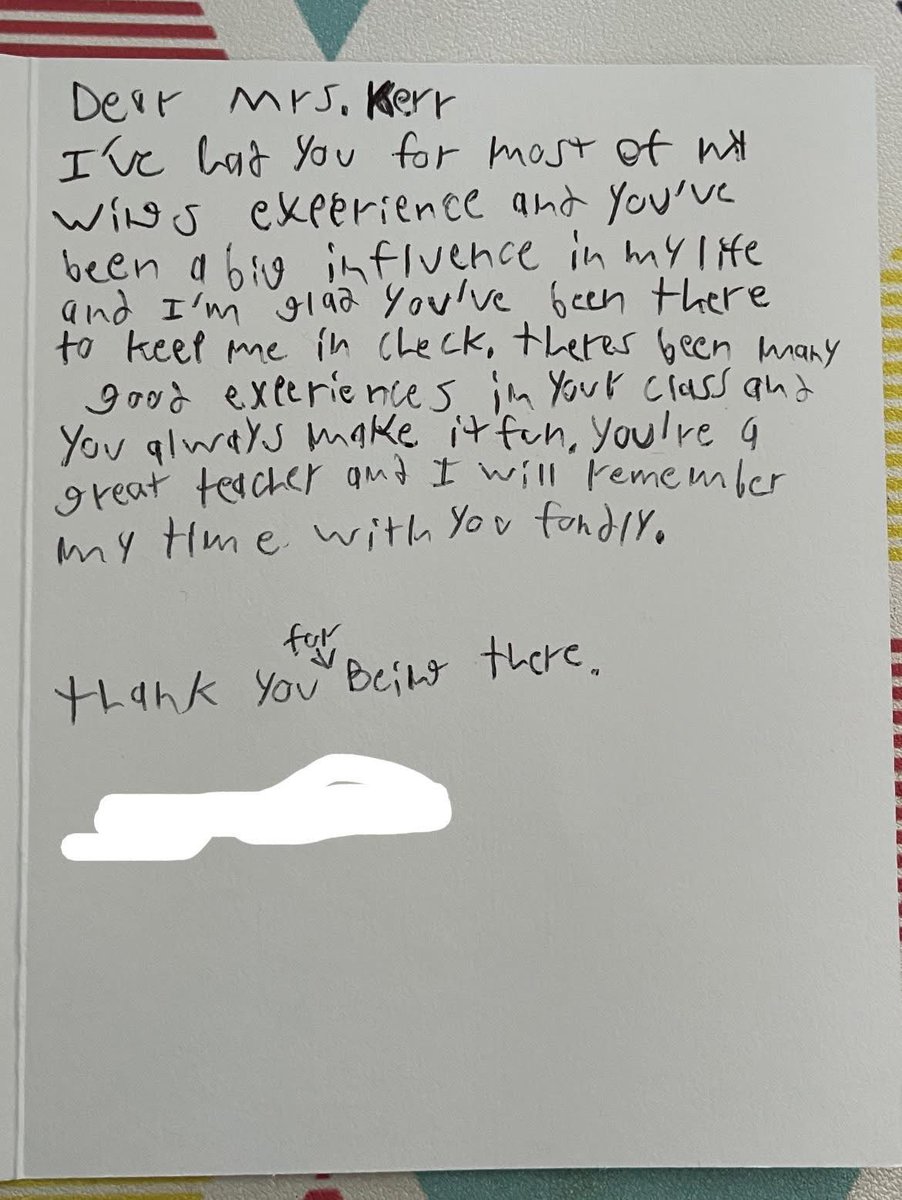 Dear Mrs. Kerr
I've had you for most of my
wings experience and you've
been a big influence in my life
and I'm glad you've been there
to keep me in check. theres been many
good experiences in your class and
you always make it fun. you're a
great teacher and I will remember
my time with you fondly.
for
thank you Being there.